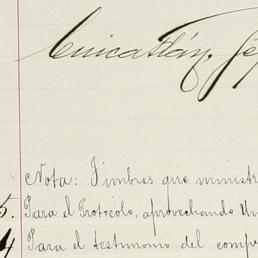 Cuicatlán,
Nota: Timbres que ministr
5. Para el Protócolo, aprovechando Un
4 Para el testimonio del comp